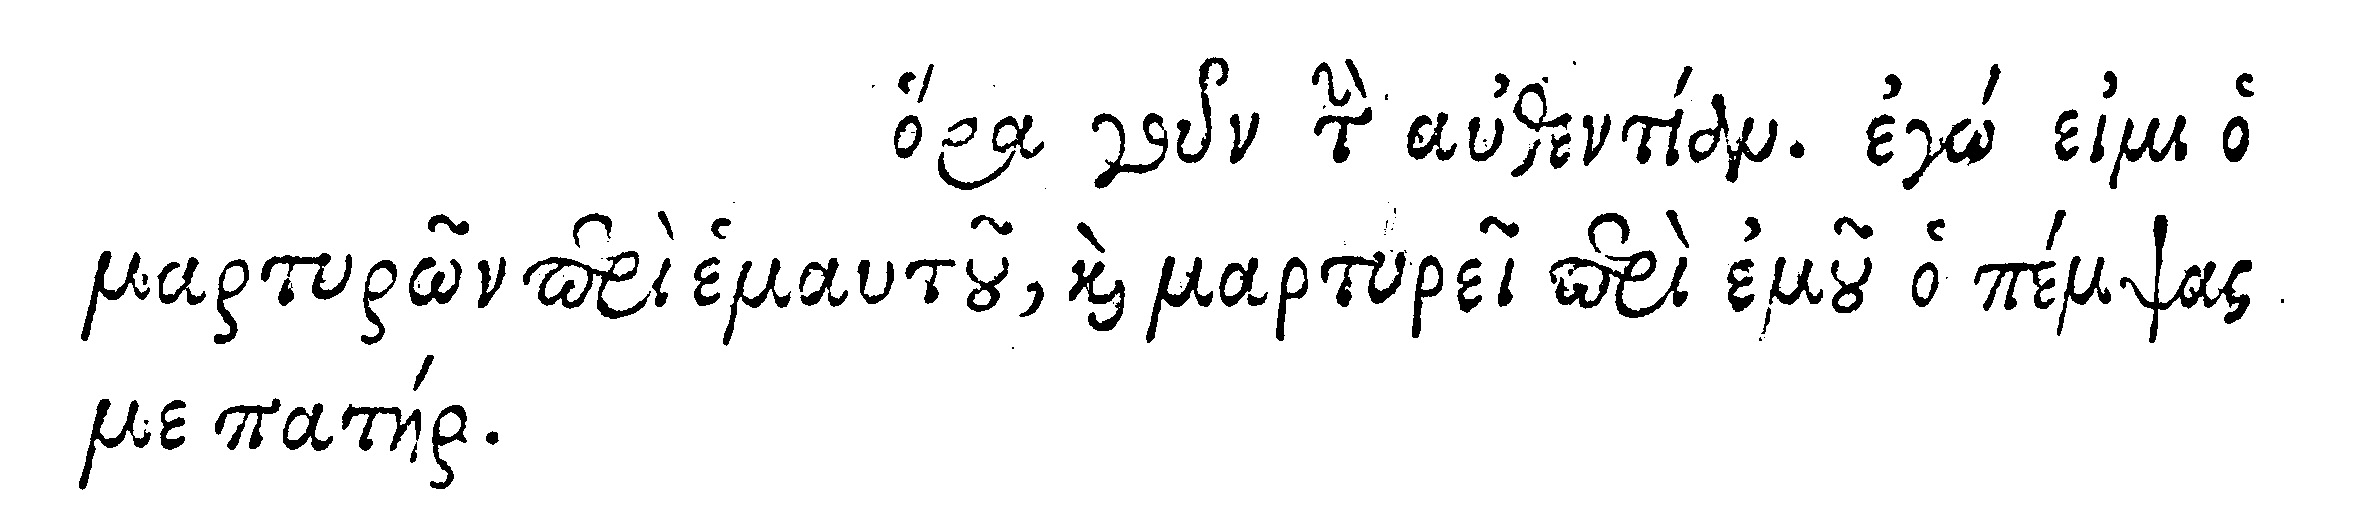 ὅρα γοῦν τὴν αὐθεντίαν. ἐγώ εἰμι ὁ
μαρτυρῶν περὶ ἑμαυτοῦ, καὶ μαρτυρεῖ περὶ ἐμοῦ ὁ πέμψας
με πατήρ.